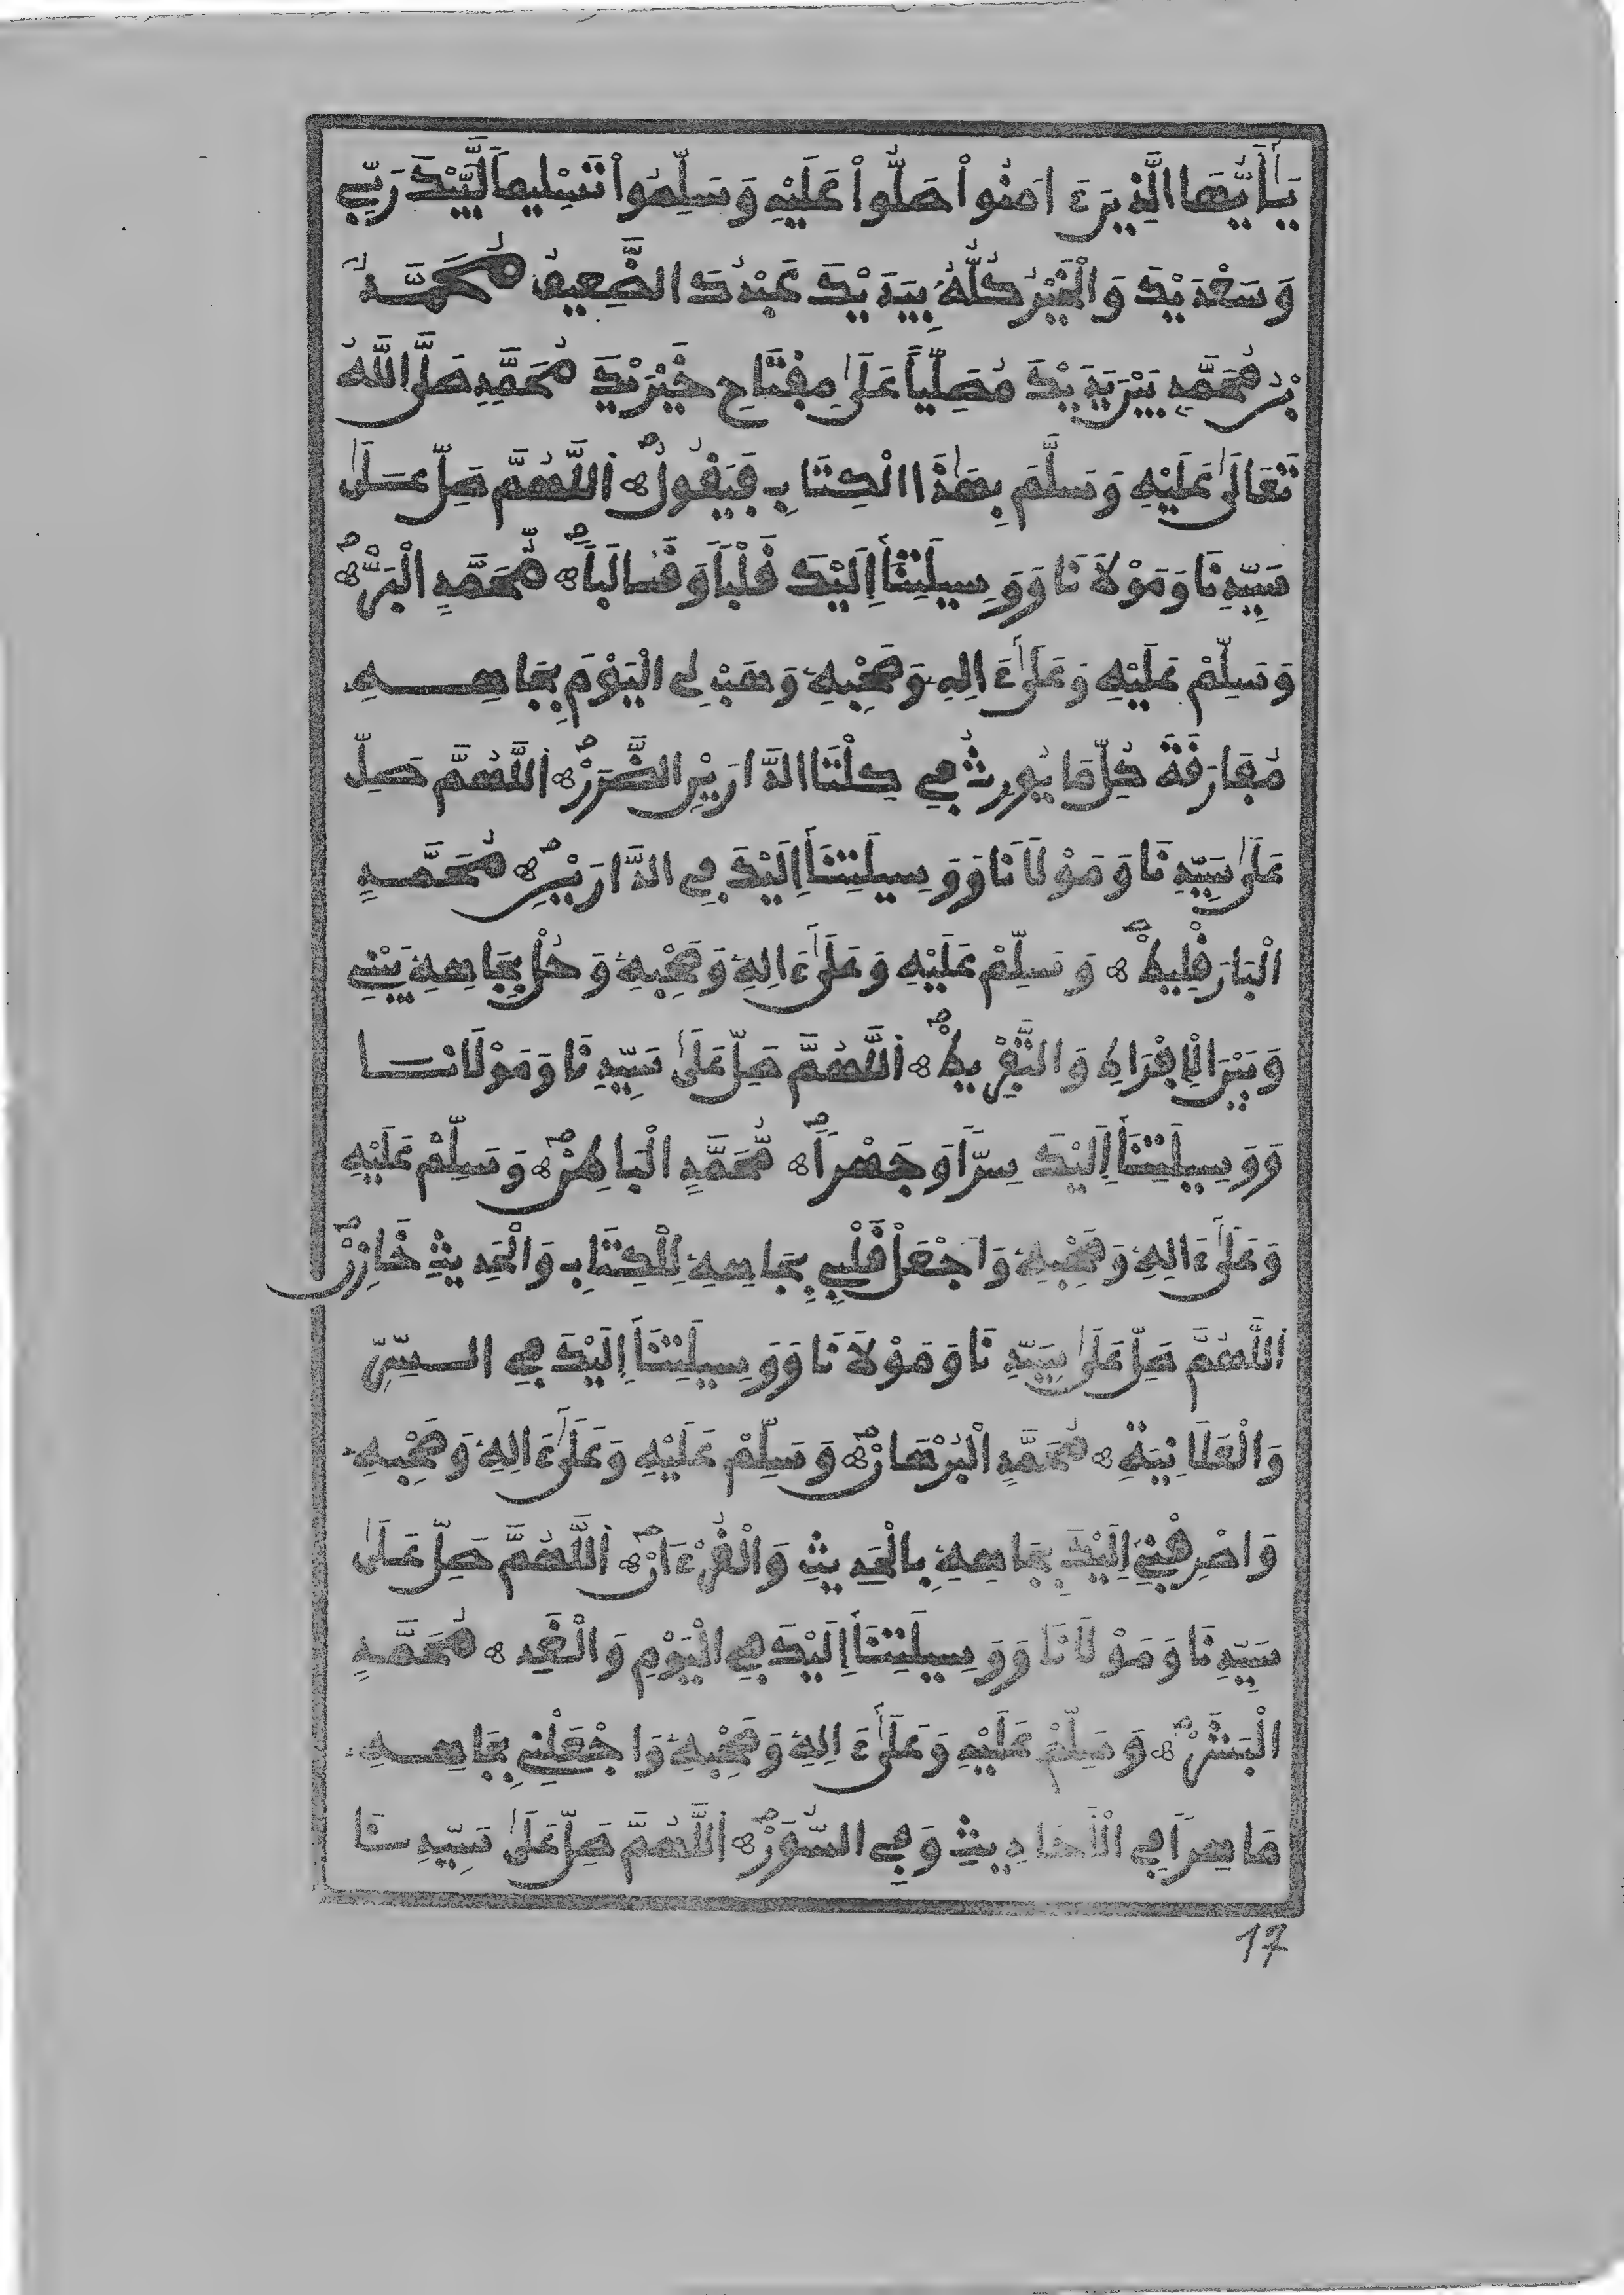 يَٰأَيُّهَا الَّذِينَ ءَامَنُواْ صَلُّواْ عَلَيْهِ وَسَلِّمُواْ تَسْلِيماً لَبَّيْكَ رَبِّي
وَسَعْدَيْكَ وَالْخَيْرُ كُلُّهُ بِيَدَيْكَ عَبْدُكَ الضَّعِيفُ مُحَمَّدُ
بْنُ مُحَمَّدٍ بَيْنَ يَدَيْكَ مُصَلِّياً عَلَىٰ مِفْتَاحِ خَيْرَيْكَ مُحَمَّدٍ صَلَّى اللَّهُ
تَعَالَىٰ عَلَيْهِ وَسَلَّمَ بِهَٰذَا الْكِتَابِ فَيَقُولُ اَللَّهُمَّ صَلِّ عَلَىٰ
سَيِّدِنَا وَمَوْلَانَا وَوَسِيلَتِنَا إِلَيْكَ قَلْباً وَقَالَباً مُّحَمَّدٍ الْبَرِّ
وَسَلِّمْ عَلَيْهِ وَعَلَىٰ ءَالِهِ وَصَحْبِهِ وَهَبْ لِي الْيَوْمَ بِجَاهِهِ
مُفَارَقَةَ كُلِّ مَا يُورِثُ فِي كِلْتَا الدَّارَيْنِ الضَّرَرْ اَللَّهُمَّ صَلِّ
عَلَىٰ سَيِّدِنَا وَمَوْلَانَا وَوَسِيلَتِنَا إِلَيْكَ فِي الدَّارَيْنِ مُحَمَّدٍ
الْبَارَقْلِيطْ وَسَلِّمْ عَلَيْهِ وَعَلَىٰ ءَالِهِ وَصَحْبِهِ وَحُلْ بِجَاهِهِ بَيْنِي
وَبَيْنَ الْإِفْرَاطِ وَالتَّفْرِيطْ اَللَّهُمَّ صَلِّ عَلَىٰ سَيِّدِنَا وَمَوْلَانَا
وَوَسِيلَتِنَا إِلَيْكَ سِرّاً وَجَهْراً مُّحَمَّدٍ الْبَاطِنْ وَسَلِّمْ عَلَيْهِ
وَعَلَىٰ ءَالِهِ وَصَحْبِهِ وَاجْعَلْ قَلْبِي بِجَاهِهِ لِلْكِتَابِ وَالْحَدِيثِ خَازِنْ
اللَّهُمَّ صَلِّ عَلَىٰ سَيِّدِنَا وَمَوْلَانَا وَوَسِيلَتِنَا إِلَيْكَ فِي السِّرِّ
وَالْعَلَانِيَةِ مُحَمَّدٍ الْبُرْهَانْ وَسَلِّمْ عَلَيْهِ وَعَلَىٰ ءَالِهِ وَصَحْبِهِ
وَاصْرِفْنِي إِلَيْكَ بِجَاهِهِ بِالْحَدِيثِ وَالْقُرْءَانْ اَللَّهُمَّ صَلِّ عَلَىٰ
سَيِّدِنَا وَمَوْلَانَا وَوَسِيلَتِنَا إِلَيْكَ فِي الْيَوْمِ وَالْغَدِ مُحَمَّدٍ
الْبَشَرْ وَسَلِّمْ عَلَيْهِ وَعَلَىٰ ءَالِهِ وَصَحْبِهِ وَاجْعَلْنِي بِجَاهِهِ
مَاهِراً فِي الْأَحَادِيثِ وَفِي السُّوَرْ اَللَّهُمَّ صَلِّ عَلَىٰ سَيِّدِنَا
17